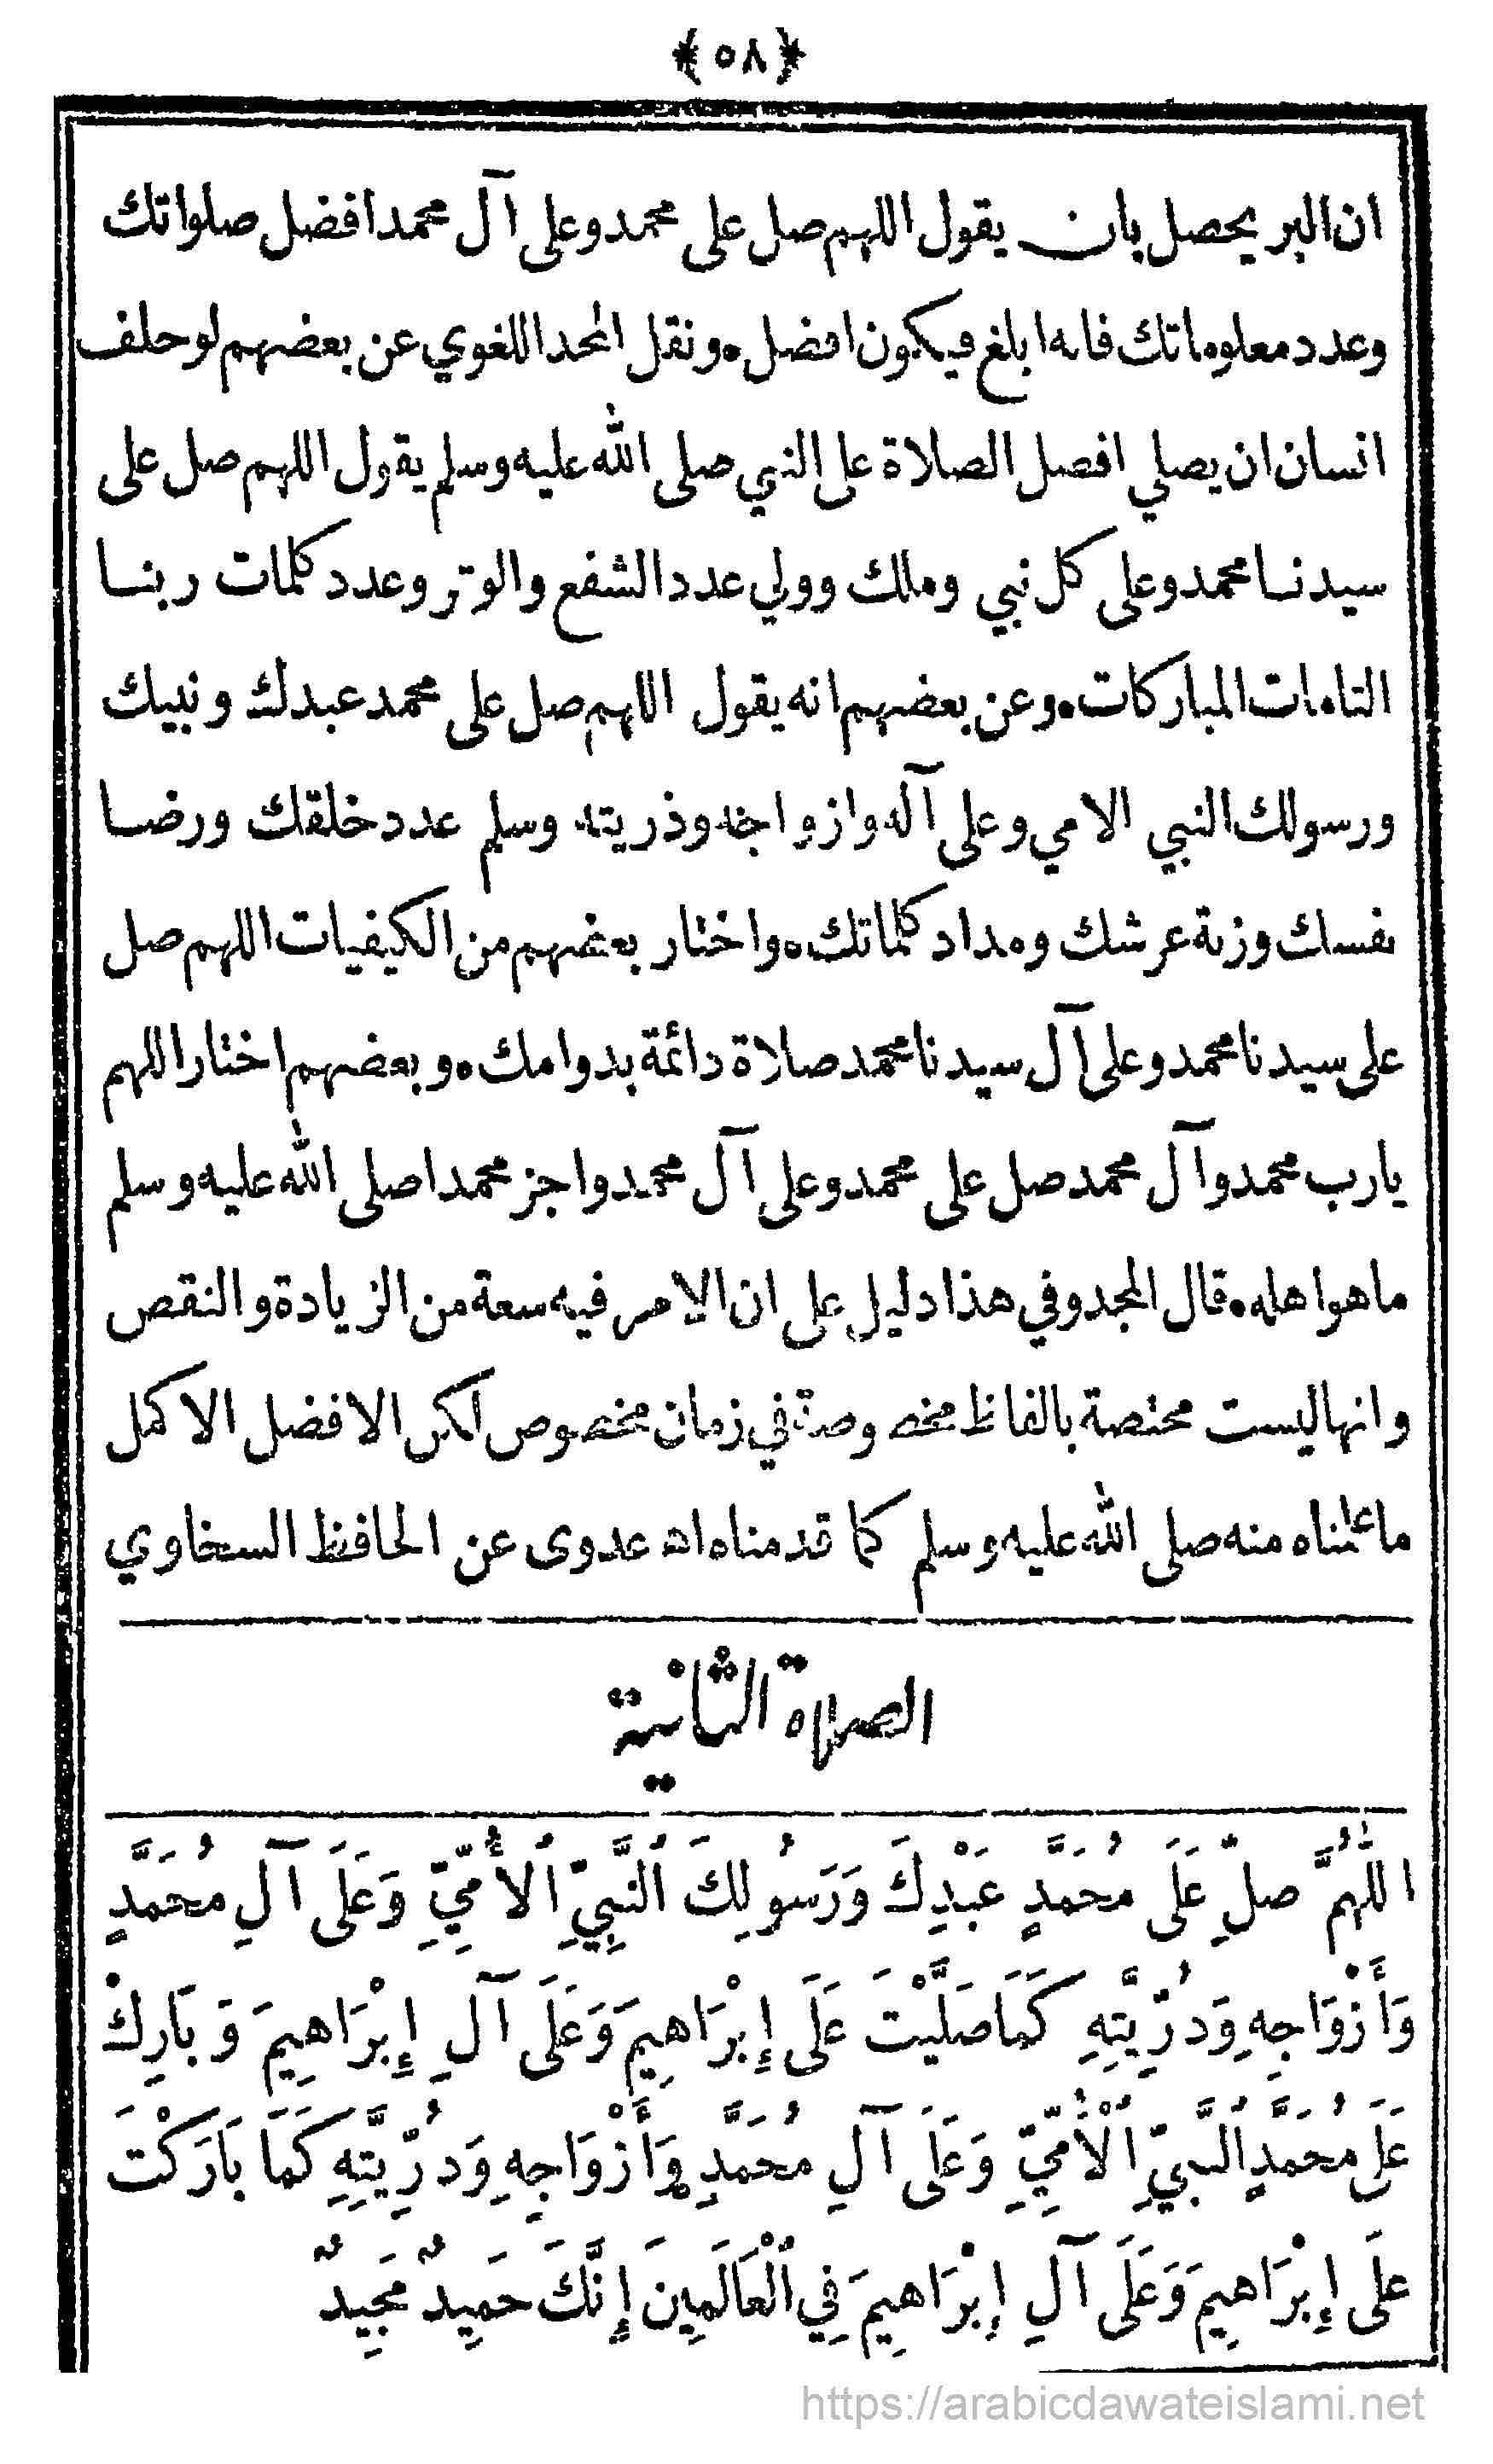 ﴿٥٨﴾
ان البر يحصل بان يقول اللهم صل على محمد وعلى آل محمد افضل صلواتك
وعدد معلوماتك فانه ابلغ فيكون افضل ٠ ونقل المجد اللغوي عن بعضهم لو حلف
انسان ان يصلي افضل الصلاة على النبي صلى الله عليه وسلم يقول اللهم صل على
سيدنا محمد وعلى كل نبي وملك وولي عدد الشفع والوتر وعدد كلمات ربنا
التامات المباركات ٠ وعن بعضهم انه يقول اللهم صل على محمد عبدك ونبيك
ورسولك النبي الامي وعلى آله وازواجه وذريته وسلم عدد خلقك ورضا
نفسك وزنة عرشك ومداد كلماتك ٠ واختار بعضهم من الكيفيات اللهم صل
على سيدنا محمد وعلى آل سيدنا محمد صلاة دائمة بدوامك ٠ وبعضهم اختار اللهم
يا رب محمد وآل محمد صل على محمد وعلى آل محمد واجز محمدا صلى الله عليه وسلم
ما هو اهله ٠ قال المجد وفي هذا دليل على ان الامر فيه سعة من الزيادة والنقص
وانها ليست مختصة بالفاظ مخصوصة في زمان مخصوص لكن الافضل الاكمل
ما علمناه منه صلى الله عليه وسلم كما قدمناه اه عدوى عن الحافظ السخاوي
الصلاة الثانية
اللّٰهُمَّ صلِّ عَلَى مُحَمَّدٍ عَبْدِكَ وَرَسُولِكَ ٱلنَّبِيِّ ٱلأُمِّيِّ وَعَلَى آلِ مُحَمَّدٍ
وَأَزْوَاجِهِ وَذُرِّيَّتِهِ كَمَا صَلَّيْتَ عَلَى إِبْرَاهِيمَ وَعَلَى آلِ إِبْرَاهِيمَ وَبَارِكْ
عَلَى مُحَمَّدٍ ٱلنَّبِيِّ ٱلْأُمِّيِّ وَعَلَى آلِ مُحَمَّدٍ وَأَزْوَاجِهِ وَذُرِّيَّتِهِ كَمَا بَارَكْتَ
عَلَى إِبْرَاهِيمَ وَعَلَى آلِ إِبْرَاهِيمَ فِي ٱلْعَالَمِينَ إِنَّكَ حَمِيدٌ مَجِيدٌ
https://arabicdawateislami.net